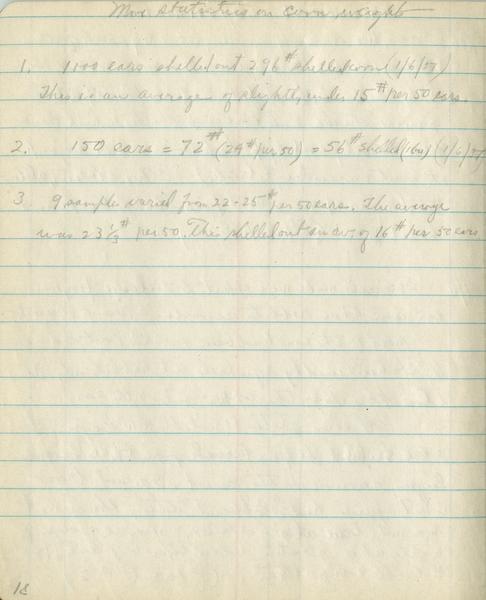 More statistics on corn weights
1. 1100 ears shelled out 296# shelled corn (1/6/27)
This is an average of slightly under 15# per 50 ears.
2. 150 ears = 72# (24# per 50) = 56# shelled (1bu) (1/6/27)
3 9 samples varied from 22-25# per 50 ears. The average
was 23 1/3# per 50. This shelled out an av. of 16# per 50 ears
18